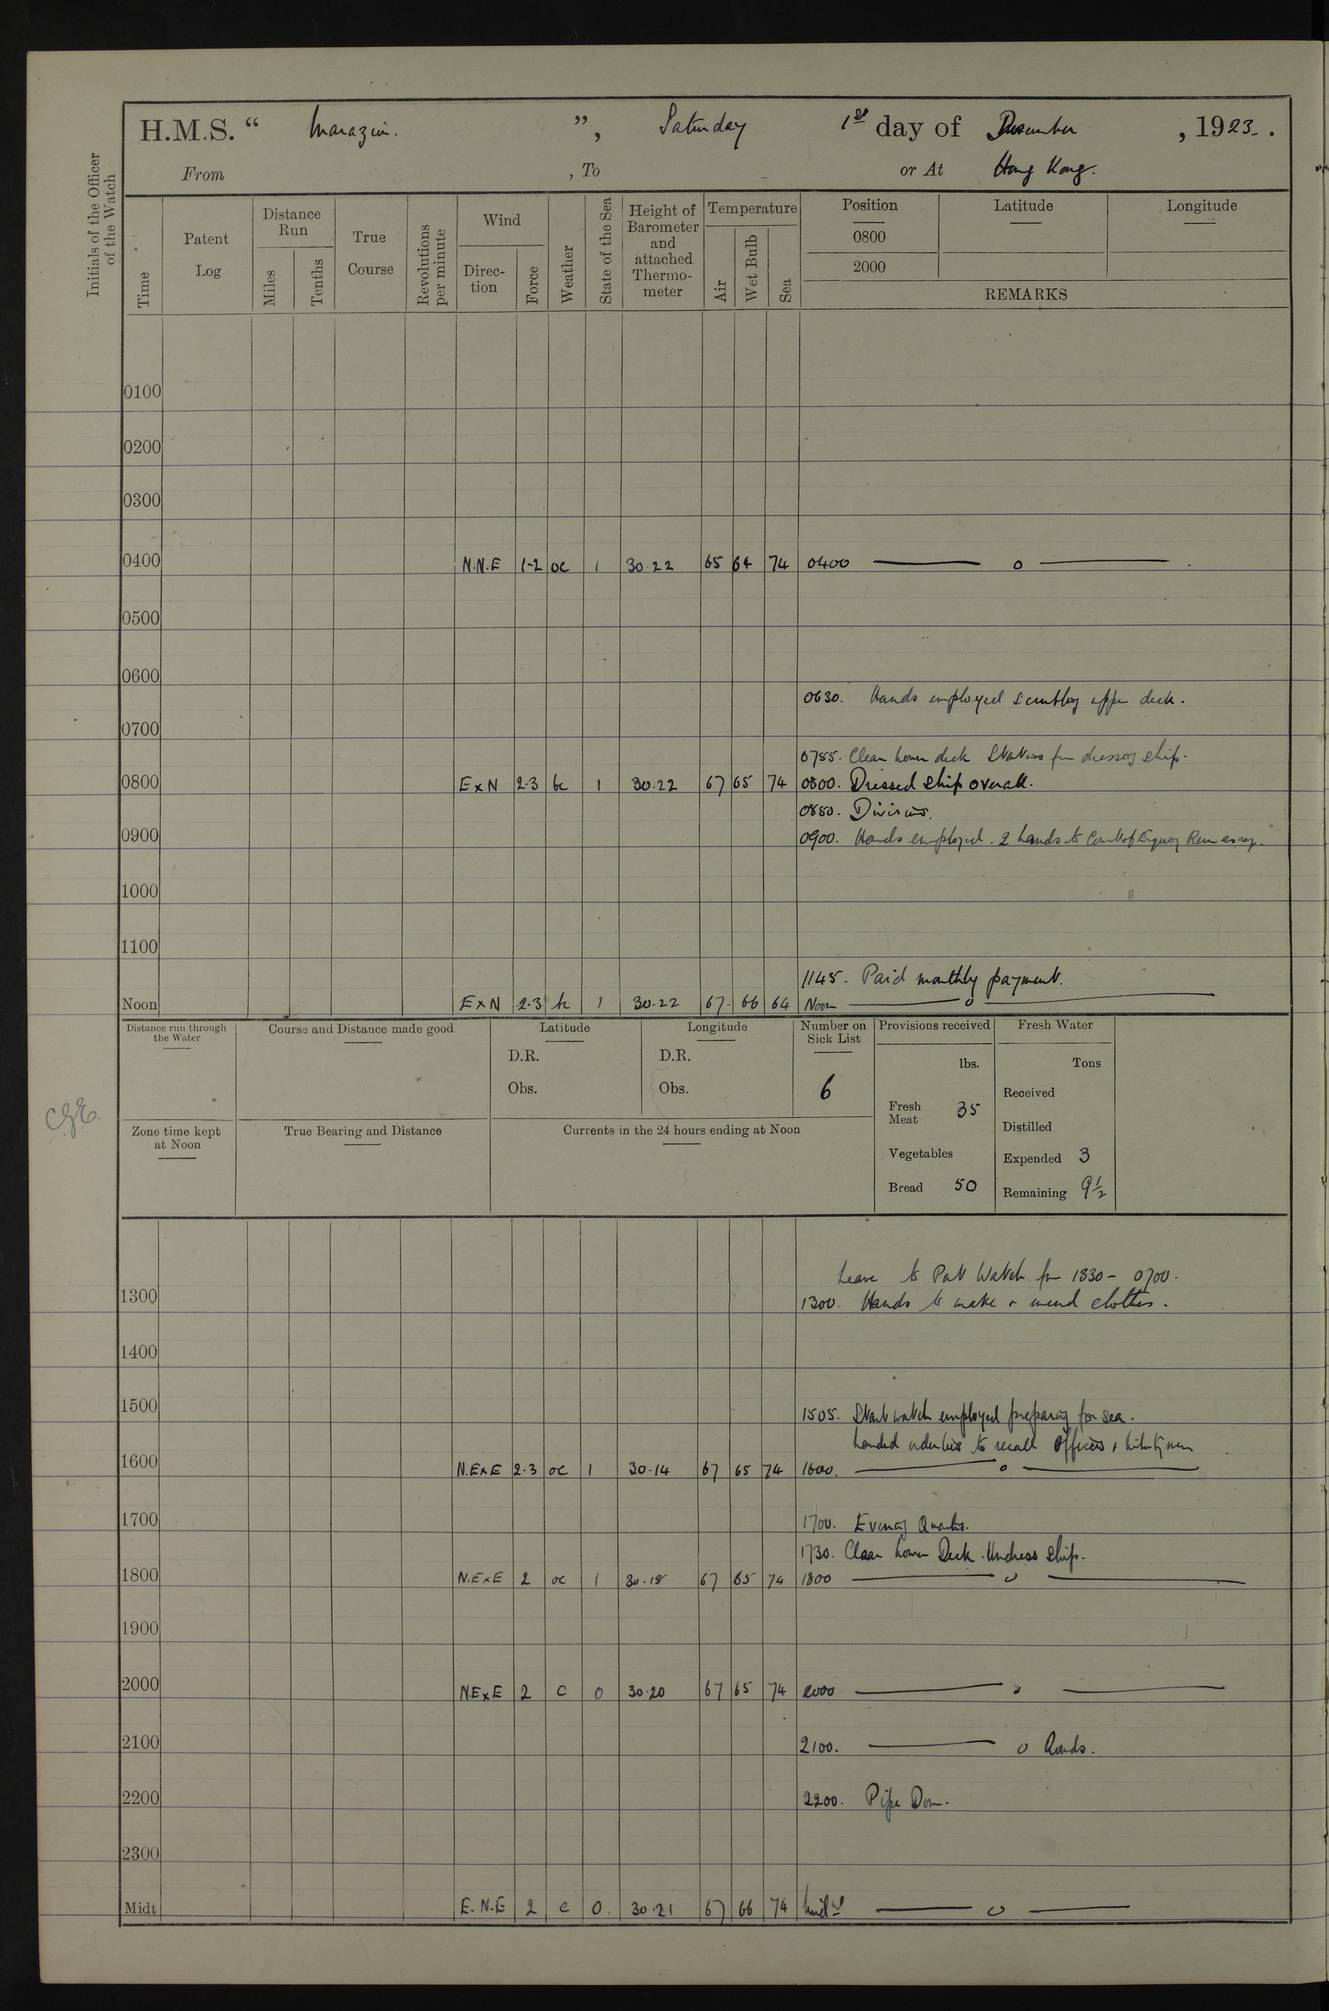 H.M.S. “ Marazion. ”, Saturday 1st day of December , 1923.
From , To or At Hong Kong.
Initials of the Officer of the Watch
Time
Patent Log
Distance Run
Miles
Tenths
True Course
Revolutions per minute
Wind
Direction
Force
Weather
State of the Sea
Height of Barometer and attached Thermometer
Temperature
Air
Wet Bulb
Sea
Position Latitude Longitude
0800
2000
REMARKS
0100
0200
0300
0400 N.N.E 1-2 oc 1 30.22 65 64 74 0400 — o —
0500
0600
0630. Hands employed scrubbing upper deck.
0700
0755. Clear lower deck Stations for dressing ship.
0800 E x N 2.3 bc 1 30.22 67 65 74 0800. Dressed ship overall.
0850. Divisions.
0900 0900. Hands employed. 2 hands to Court of Enquiry
1000
1100
1145. Paid monthly payment.
Noon E x N 2.3 bc 1 30.22 67 66 64 Noon — o —
Distance run through the Water
Course and Distance made good
Latitude
D.R.
Obs.
Longitude
D.R.
Obs.
Number on Sick List
6
Provisions received
lbs.
Fresh Meat 35
Vegetables
Bread 50
Fresh Water
Tons
Received
Distilled
Expended 3
Remaining 9½
Zone time kept at Noon
True Bearing and Distance
Currents in the 24 hours ending at Noon
Leave to Port Watch from 1330 - 0700.
1300 1300. Hands to make & mend clothes.
1400
1500 1505. Start watch employed preparing for sea.
Landed orderlies to recall officers & liberty men
1600 N.E x E 2.3 oc 1 30.14 67 65 74 1600. — o —
1700 1700. Evening Quarters.
1730. Clear Lower Deck. Undress ship.
1800 N.E x E 2 oc 1 30.18 67 65 74 1800 — o —
1900
2000 N.E x E 2 c 0 30.20 67 65 74 2000 — o —
2100 2100. — o Rounds.
2200 2200. Pipe Down.
2300
Midt E.N.E 2 c 0. 30.21 67 66 74 Midt — o —